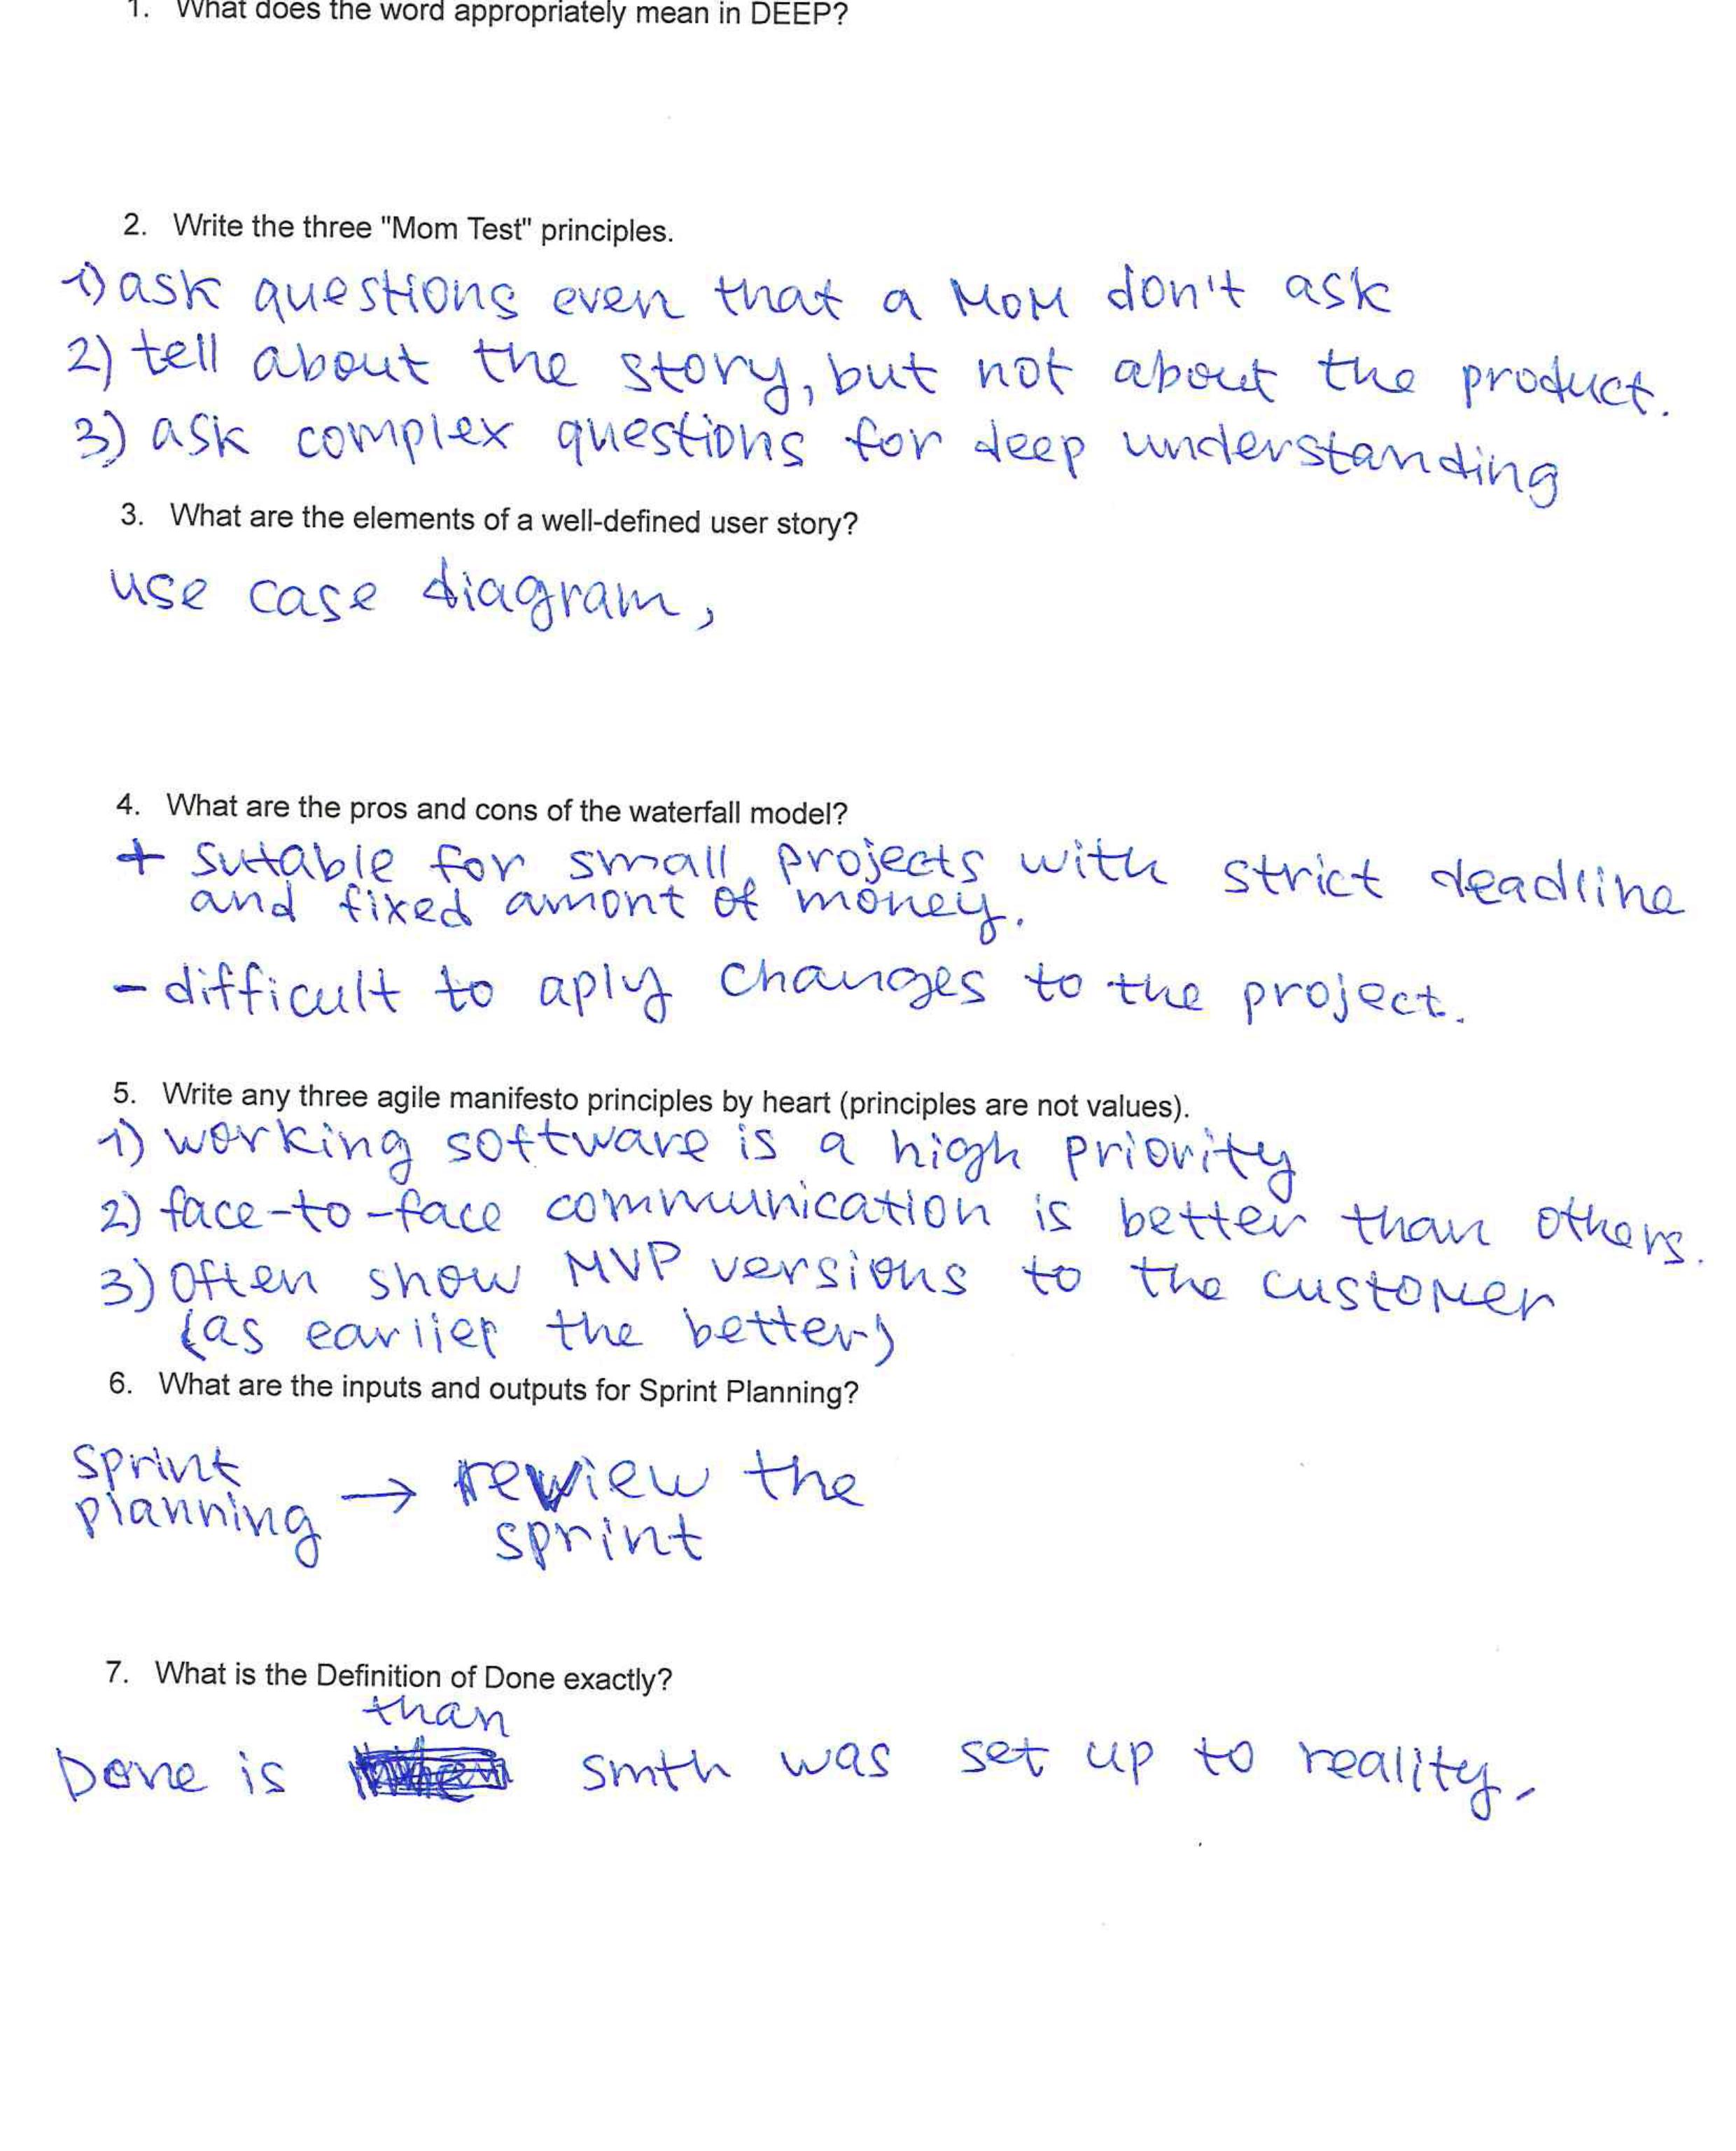 1. What does the word appropriately mean in DEEP?
2. Write the three "Mom Test" principles.
1) ask questions even that a Mom don't ask
2) tell about the story, but not about the product.
3) ask complex questions for deep understanding
3. What are the elements of a well-defined user story?
use case diagram,
4. What are the pros and cons of the waterfall model?
+ sutable for small projects with strict deadline
and fixed amont of money.
- difficult to aply changes to the project.
5. Write any three agile manifesto principles by heart (principles are not values).
1) working software is a high priority
2) face-to-face communication is better than others.
3) Often show MVP versions to the customer
(as earlier the better)
6. What are the inputs and outputs for Sprint Planning?
sprint
planning → review the
sprint
7. What is the Definition of Done exactly?
than
Done is smth was set up to reality.